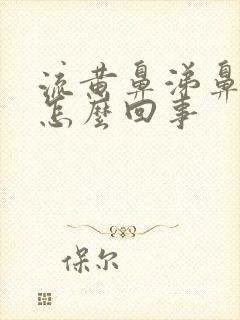 流黄鼻涕鼻
怎麼回事
保尔